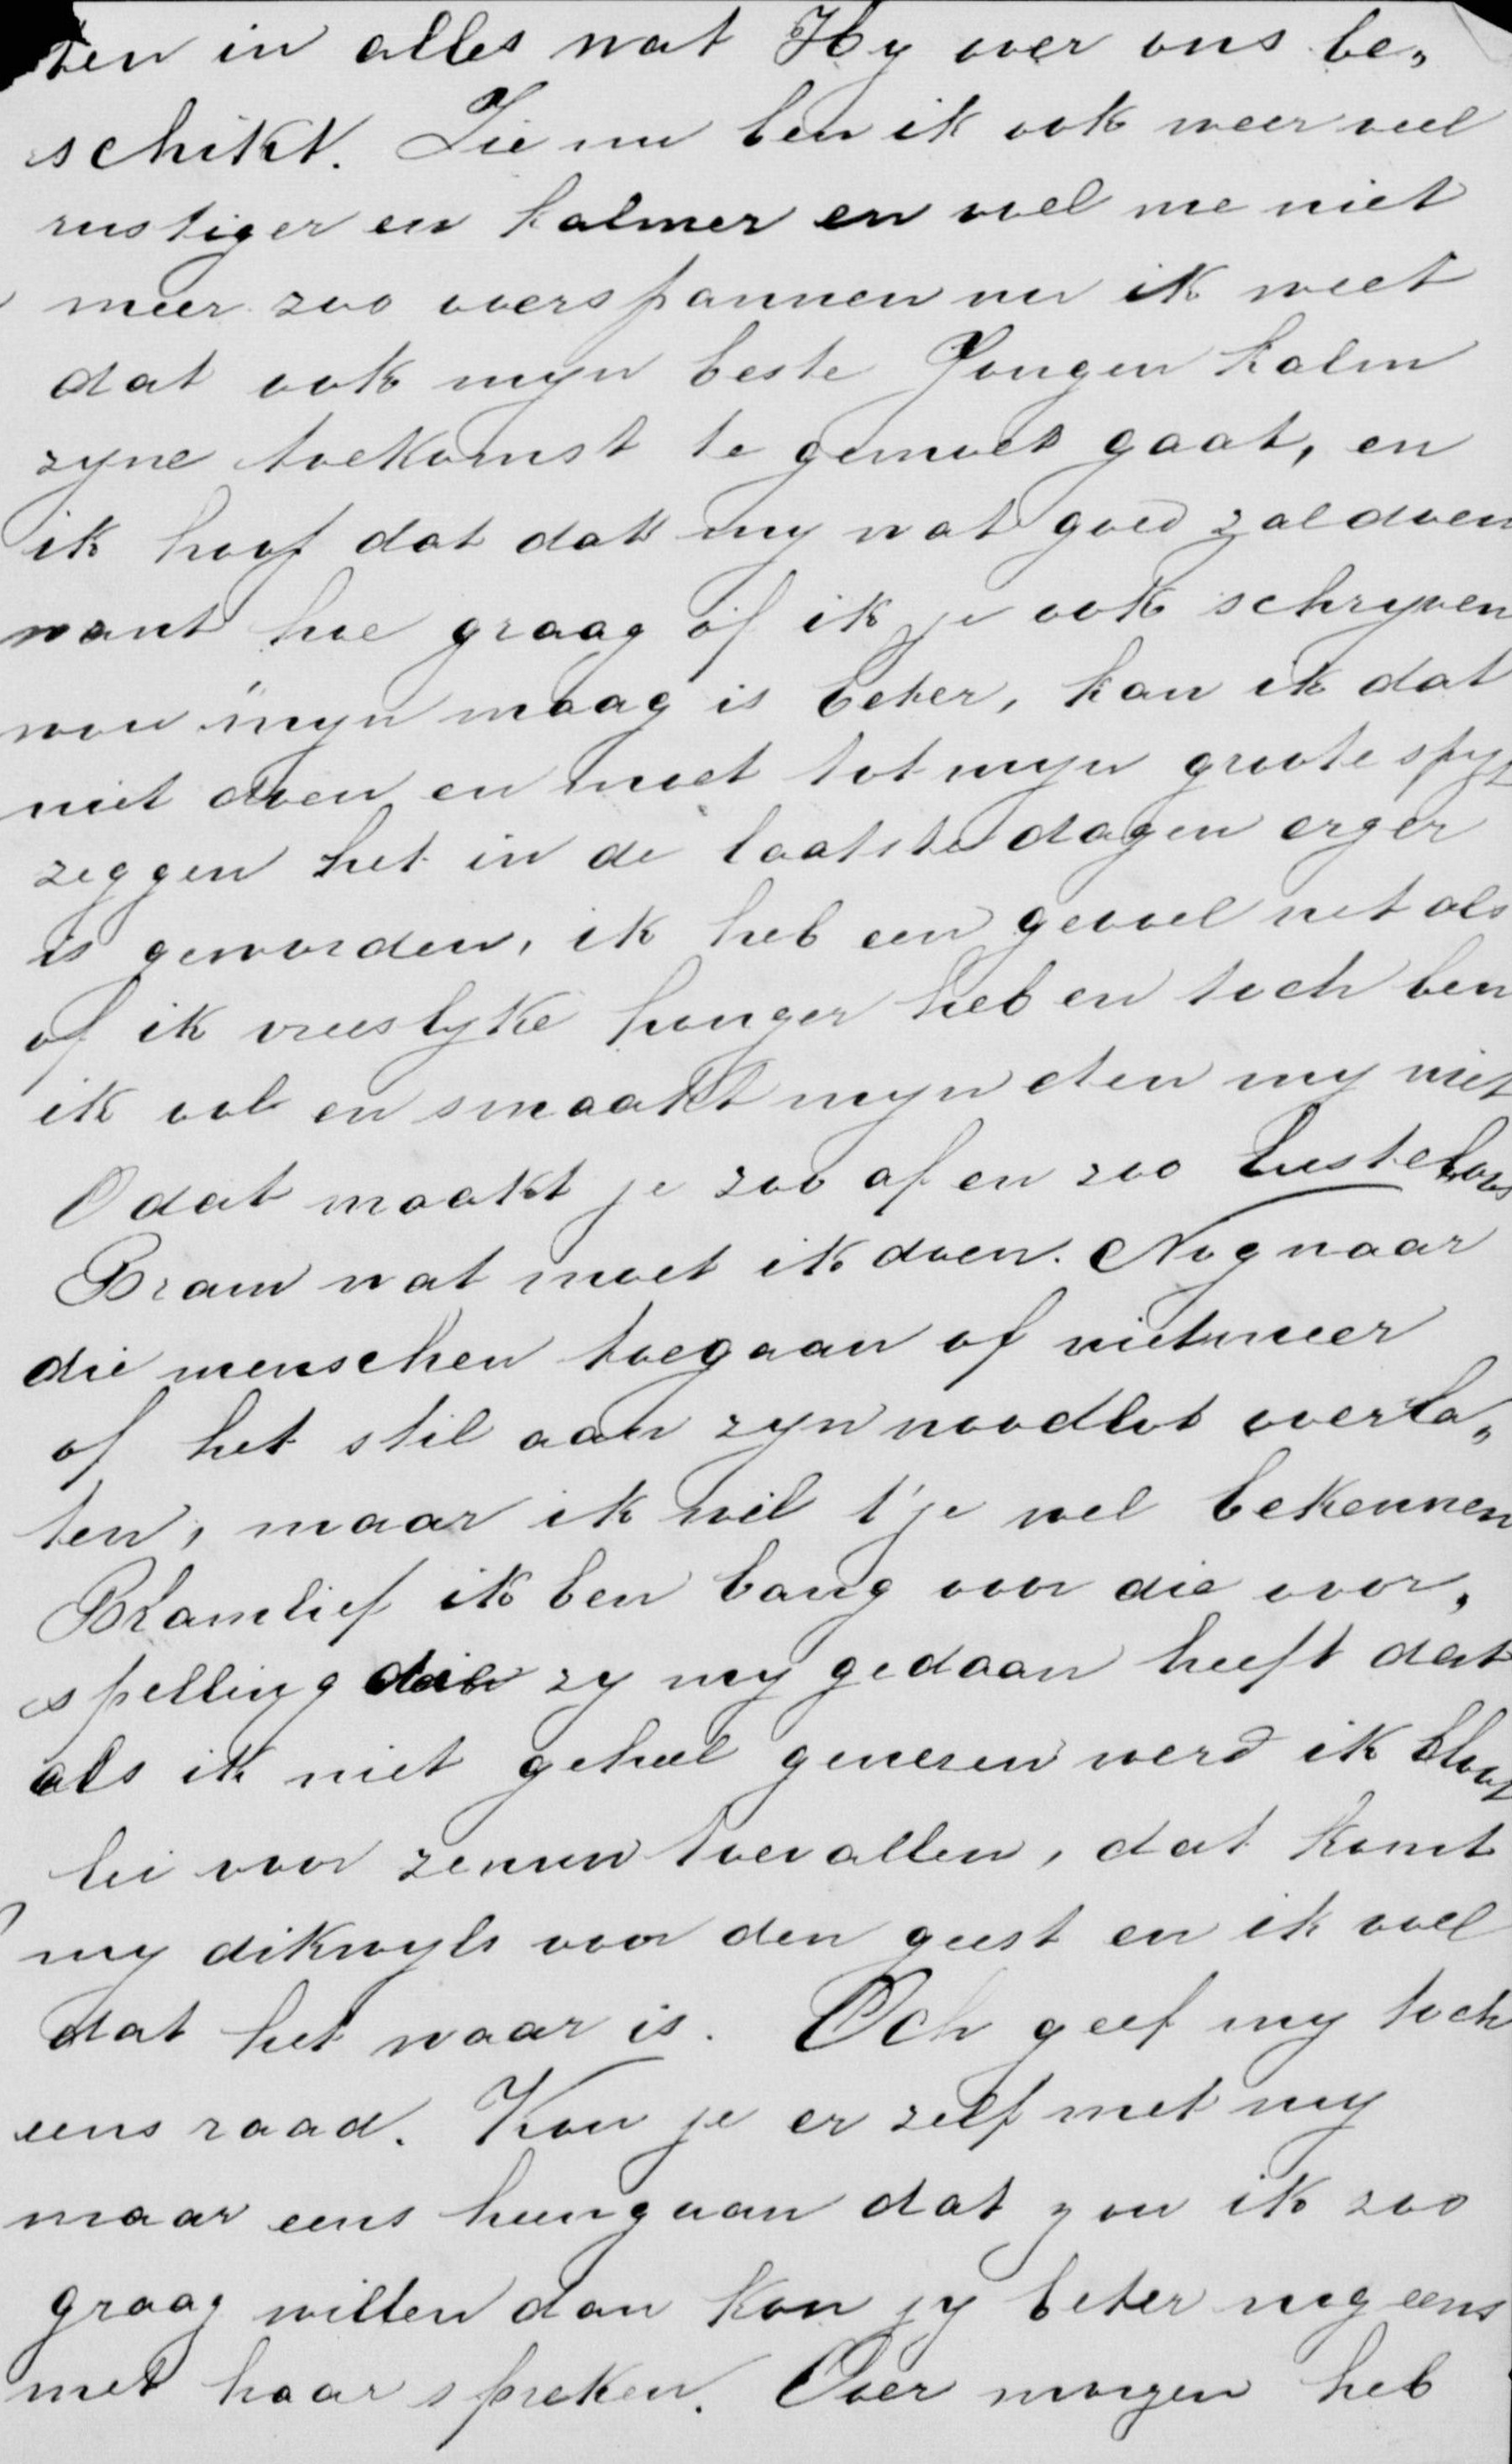 ten in alles wat Hy over ons be„
schikt. Zie nu ben ik ook weer veel
rustiger en kalmer en voel me niet
meer zoo overspannen nu ik weet
dat ook myn beste Jongen kalm
zyne toekomst te gemoet gaat, en
ik hoop dat dat my wat goed zal doen
want hoe graag of ik je ook schryven
wou "myn maag is beter, kan ik dat
niet doen en moet tot myn groote spyt
zeggen het in de laatste dagen erger
is geworden, ik heb een gevoel net als
of ik vreeslyke honger heb en toch ben
ik vol en smaakt myn eten my niet
O dat maakt je zoo af en zoo lusteloos
Bram wat moet ik doen. Nog naar
die menschen toegaan of niet meer
of het stil aan zyn noodlot overla„
ten, maar ik wil t'je wel bekennen
Bramlief ik ben bang voor die voor„
spelling die zy my gedaan heeft dat
als ik niet geheel genezen werd ik bloot
lei voor zenuw toevallen, dat komt
my dikwyls voor den geest en ik voel
dat het waar is. Och geef my toch
eens raad. Kon je er zelf met my
maar eens heengaan dat zou ik zoo
graag willen dan kon jy beter nog eens
met haar spreken. Over morgen heb